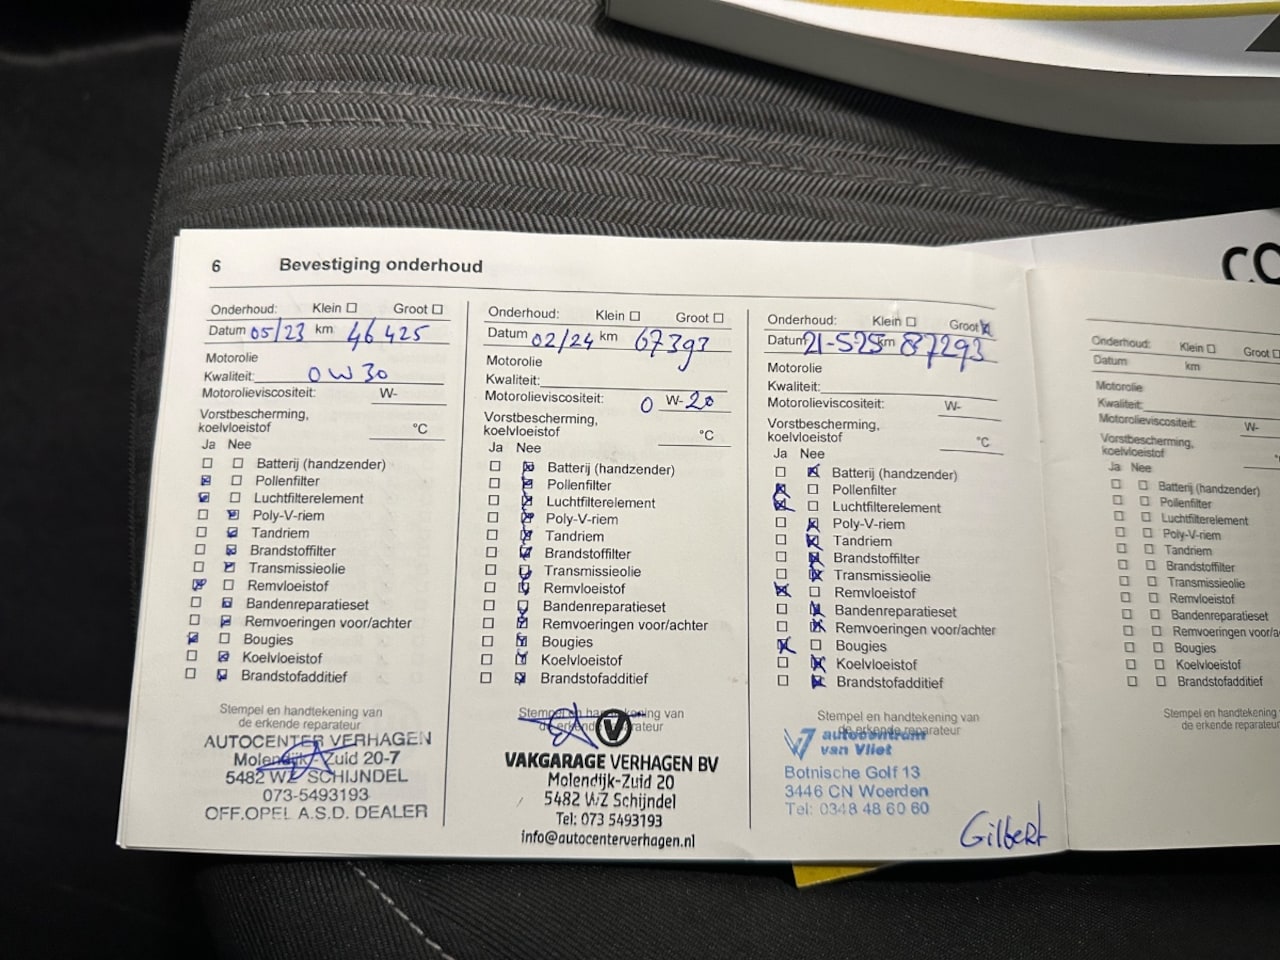 6 Bevestiging onderhoud
Onderhoud: Klein ☐ Groot ☐
Datum 05/23 km 46 425
Motorolie
Kwaliteit: 0W30
Motorolieviscositeit: W-
Vorstbescherming,
koelvloeistof °C
Ja Nee
☐ ☐ Batterij (handzender)
☒ ☐ Pollenfilter
☒ ☐ Luchtfilterelement
☐ ☒ Poly-V-riem
☐ ☒ Tandriem
☐ ☒ Brandstoffilter
☐ ☒ Transmissieolie
☒ ☐ Remvloeistof
☐ ☒ Bandenreparatieset
☐ ☒ Remvoeringen voor/achter
☒ ☐ Bougies
☐ ☒ Koelvloeistof
☐ ☒ Brandstofadditief
Stempel en handtekening van
de erkende reparateur
AUTOCENTER VERHAGEN
Molendijk-Zuid 20-7
5482 WZ SCHIJNDEL
073-5493193
OFF.OPEL A.S.D. DEALER
Onderhoud: Klein ☐ Groot ☐
Datum 02/24 km 67393
Motorolie
Kwaliteit:
Motorolieviscositeit: 0 W-20
Vorstbescherming,
koelvloeistof °C
Ja Nee
☐ ☒ Batterij (handzender)
☐ ☒ Pollenfilter
☐ ☒ Luchtfilterelement
☐ ☒ Poly-V-riem
☐ ☒ Tandriem
☐ ☒ Brandstoffilter
☐ ☒ Transmissieolie
☐ ☒ Remvloeistof
☐ ☒ Bandenreparatieset
☐ ☒ Remvoeringen voor/achter
☐ ☒ Bougies
☐ ☒ Koelvloeistof
☐ ☒ Brandstofadditief
Stempel en handtekening van
de erkende reparateur
V
VAKGARAGE VERHAGEN BV
Molendijk-Zuid 20
5482 WZ Schijndel
Tel: 073 5493193
info@autocenterverhagen.nl
Onderhoud: Klein ☐ Groot ☒
Datum 21-525 km 87293
Motorolie
Kwaliteit:
Motorolieviscositeit: W-
Vorstbescherming,
koelvloeistof °C
Ja Nee
☐ ☒ Batterij (handzender)
☒ ☐ Pollenfilter
☒ ☐ Luchtfilterelement
☐ ☒ Poly-V-riem
☐ ☒ Tandriem
☐ ☒ Brandstoffilter
☐ ☒ Transmissieolie
☒ ☐ Remvloeistof
☐ ☒ Bandenreparatieset
☐ ☒ Remvoeringen voor/achter
☒ ☐ Bougies
☐ ☒ Koelvloeistof
☐ ☒ Brandstofadditief
Stempel en handtekening van
de erkende reparateur
autocentrum
van Vliet
Botnische Golf 13
3446 CN Woerden
Tel: 0348 48 60 60
Gilbert
Onderhoud: Klein ☐ Groot ☐
Datum km
Motorolie
Kwaliteit:
Motorolieviscositeit: W-
Vorstbescherming,
koelvloeistof
Ja Nee
☐ ☐ Batterij (handzender)
☐ ☐ Pollenfilter
☐ ☐ Luchtfilterelement
☐ ☐ Poly-V-riem
☐ ☐ Tandriem
☐ ☐ Brandstoffilter
☐ ☐ Transmissieolie
☐ ☐ Remvloeistof
☐ ☐ Bandenreparatieset
☐ ☐ Remvoeringen voor/a
☐ ☐ Bougies
☐ ☐ Koelvloeistof
☐ ☐ Brandstofadditief
Stempel en handtekening
de erkende reparateur
CO